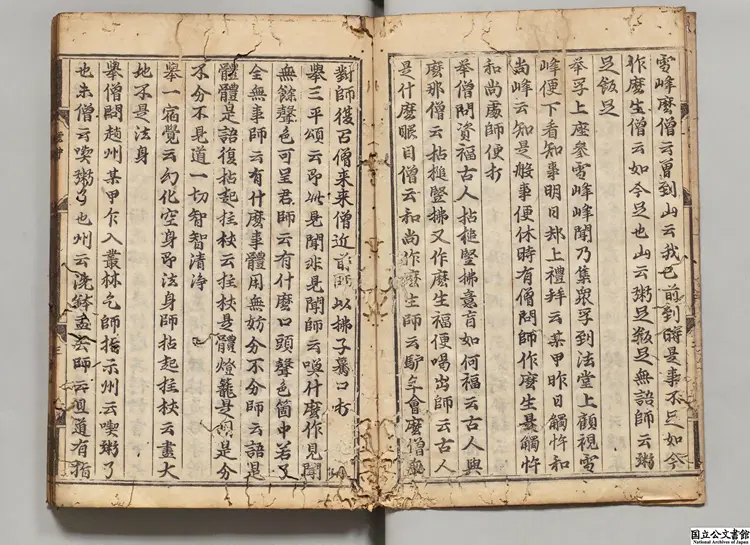 雪峰麼僧云曾到山云我已前到時是事不足如今
作麼生僧云如今足也山云粥足飯足無語師云粥
足飯足
舉孚上座參雪峰峰聞乃集衆孚到法堂上顧視雪
峰便下看知事明日却上禮拜云某甲昨日觸忤和
尚峰云知是般事便休時有僧問師作麼生是觸忤
和尚處師便打
舉僧問資福古人拈槌竪拂意旨如何福云古人與
麼那僧云拈槌竪拂又作麼生福便喝出師云古人
是什麼眼目僧云和尚作麼生師云驢年會麼僧無
對師復召僧來來僧近前師以拂子驀口打
舉三平頌云即此見聞非見聞師云喚什麼作見聞
無餘聲色可呈君師云有什麼口頭聲色箇中若了
全無事師云有什麼事體用無妨分不分師云語是
體體是語復拈起拄杖云拄杖是體燈籠是用是分
不分不見道一切智智清淨
舉一宿覺云幻化空身即法身師拈起拄杖云盡大
地不是法身
舉僧問趙州某甲乍入叢林乞師指示州云喫粥了
也未僧云喫粥了也州云洗鉢盂去師云且道有指
国立公文書館
National Archives of Japan